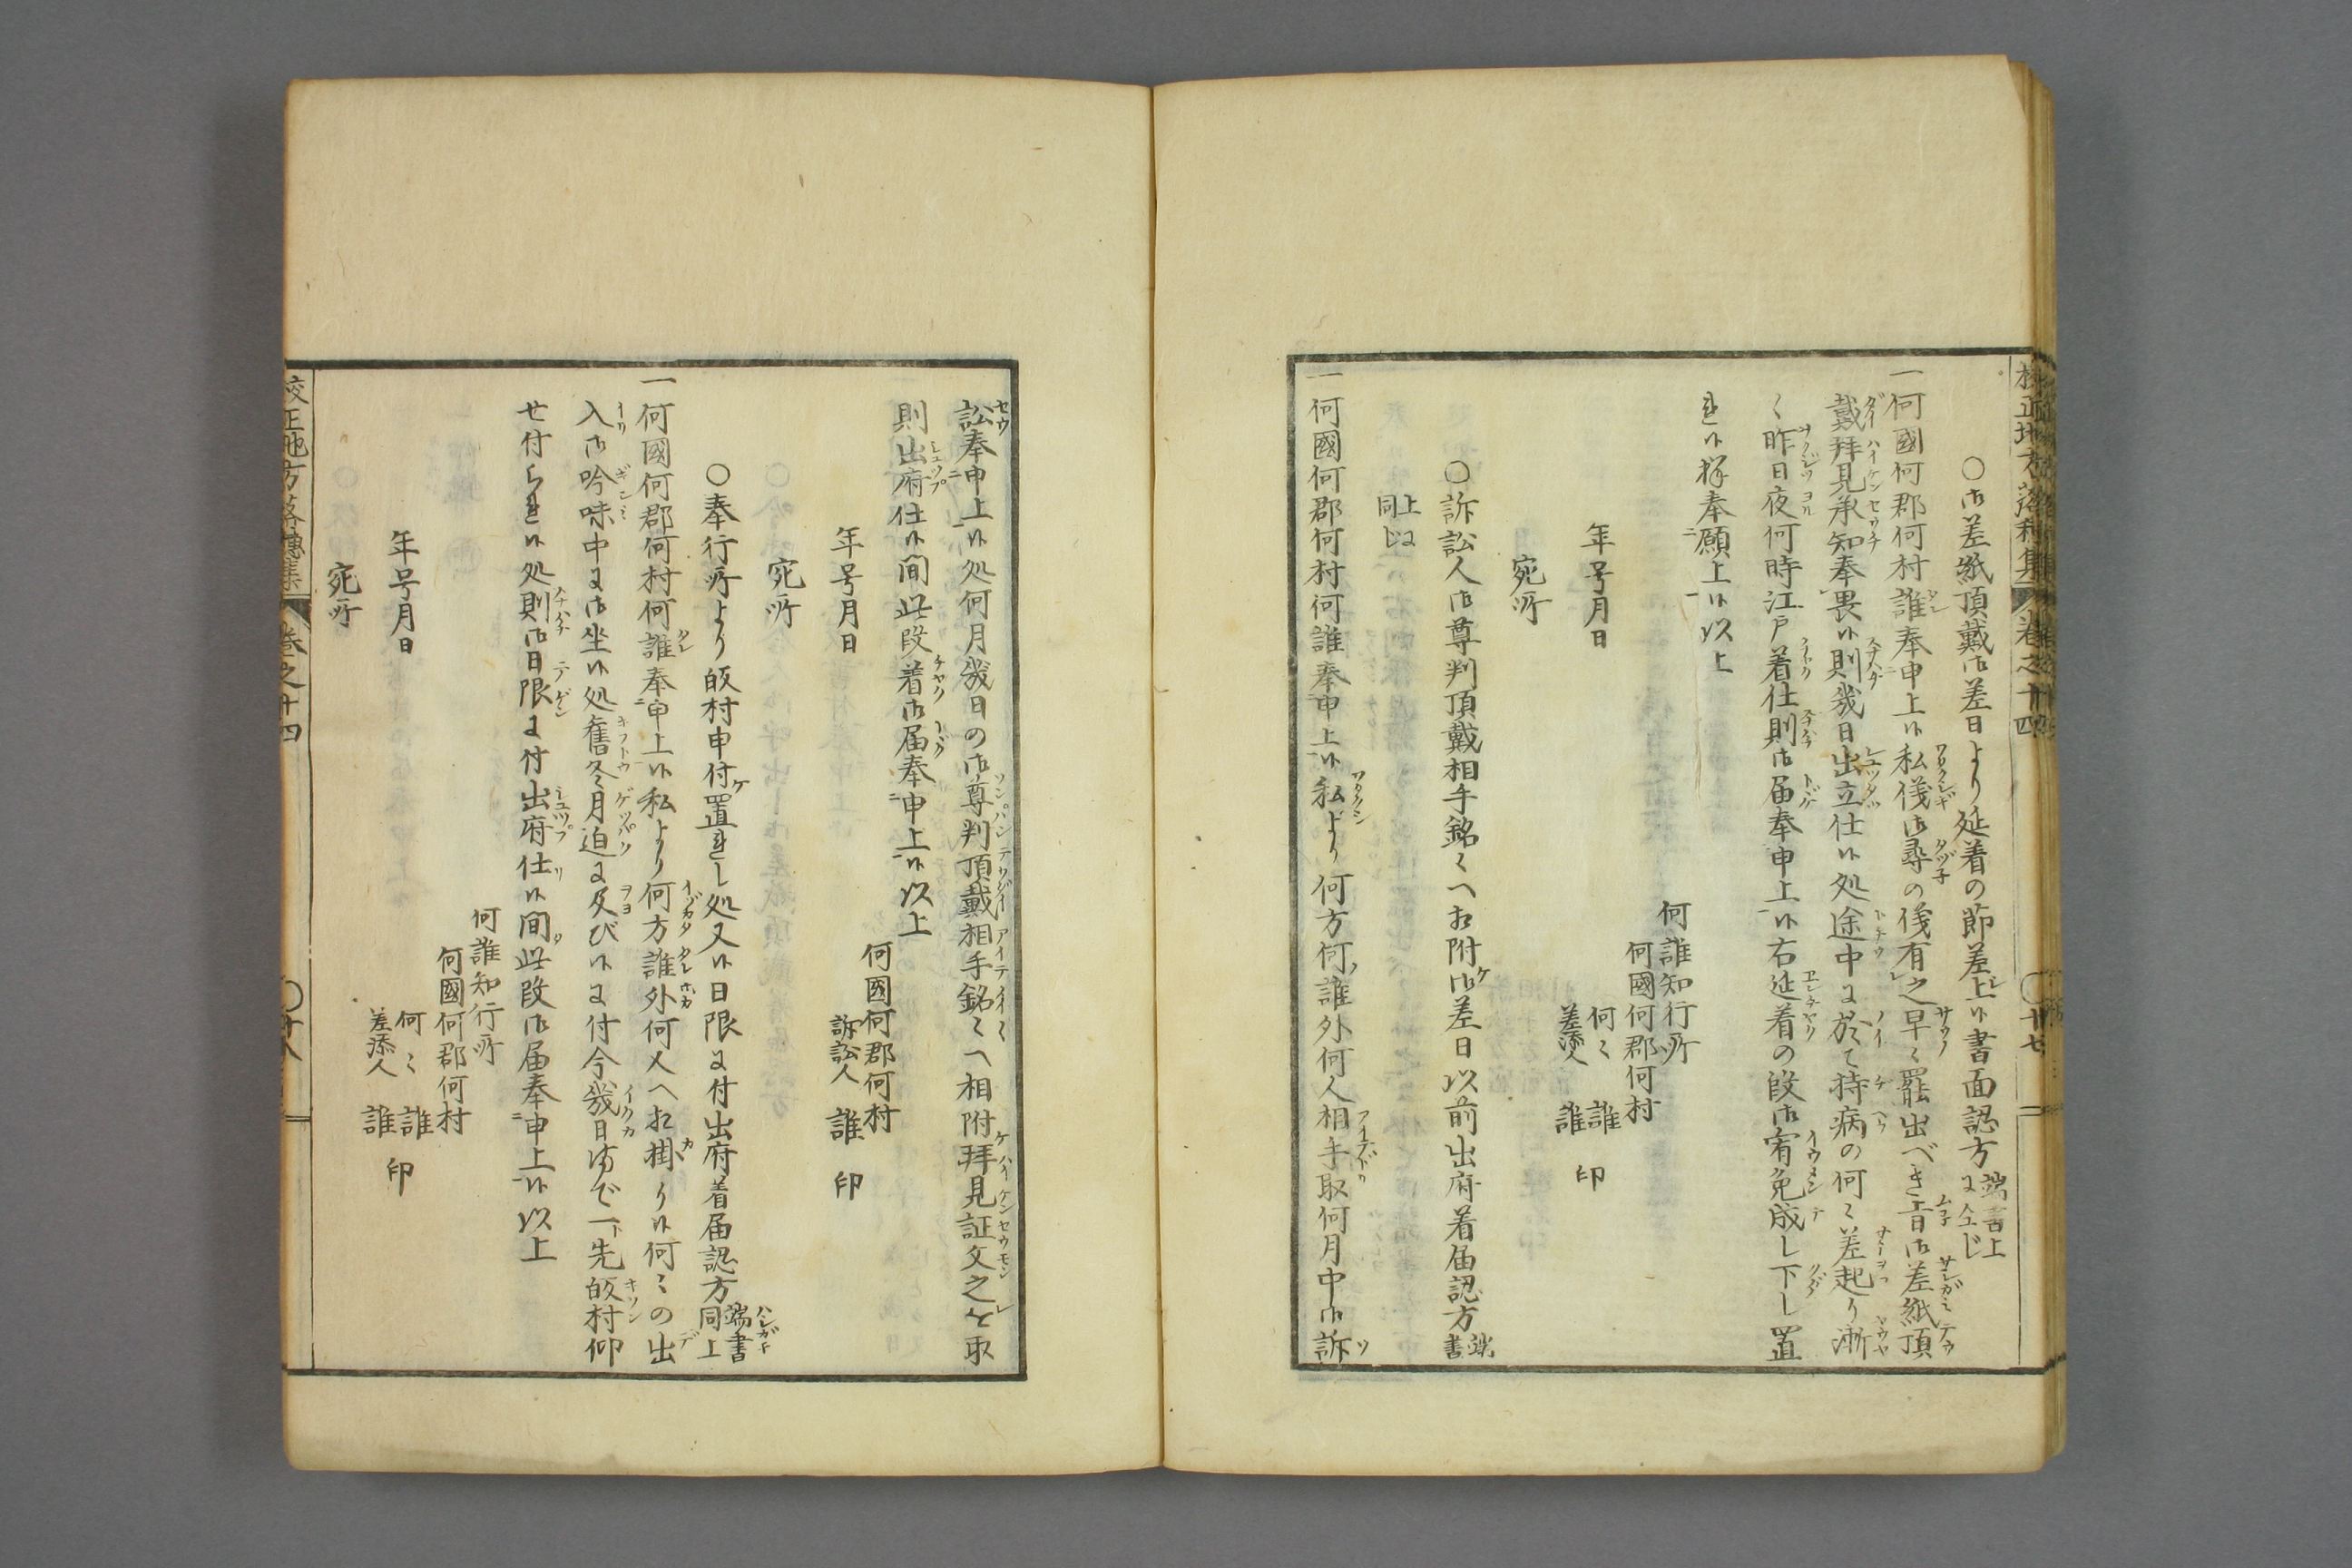 ○御差紙頂戴御差日より延着の節差上候書面認方 端書上に仝じ
一何國何郡何村誰奉申上候私儀御尋の儀有之早々罷出べき旨御差紙頂
戴拜見承知奉畏候則幾日出立仕候処途中に於て持病の何々差起り漸
く昨日夜何時江戸着仕則御届奉申上候右延着の段御宥免成し下し置
れ候様奉願上候以上
何誰知行所
何國何郡何村
年号月日
何々 誰
差添人 誰 印
宛所
○訴訟人御尊判頂戴相手銘々へ相附御差日以前出府着届認方 端書
上に同じ
一何國何郡何村何誰奉申上候私より何方何誰外何人相手取何月中御訴
訟奉申上候処何月幾日の御尊判頂戴相手銘々へ相附拜見証文之を取
則出府仕候間此段着御届奉申上候以上
何國何郡何村
年号月日
訴訟人 誰 印
宛所
○奉行所より皈村申付置れし処又候日限に付出府着届認方 端書同上
一何國何郡何村何誰奉申上候私より何方誰外何人へ相掛り候何々の出
入御吟味中に御坐候処舊冬月迫に及び候に付今幾日まで一ト先皈村仰
せ付られ候処則御日限に付出府仕候間此段御届奉申上候以上
何誰知行所
何國何郡何村
年号月日
何々 誰
差添人 誰 印
宛所
校正地方落穗集 巻之十四